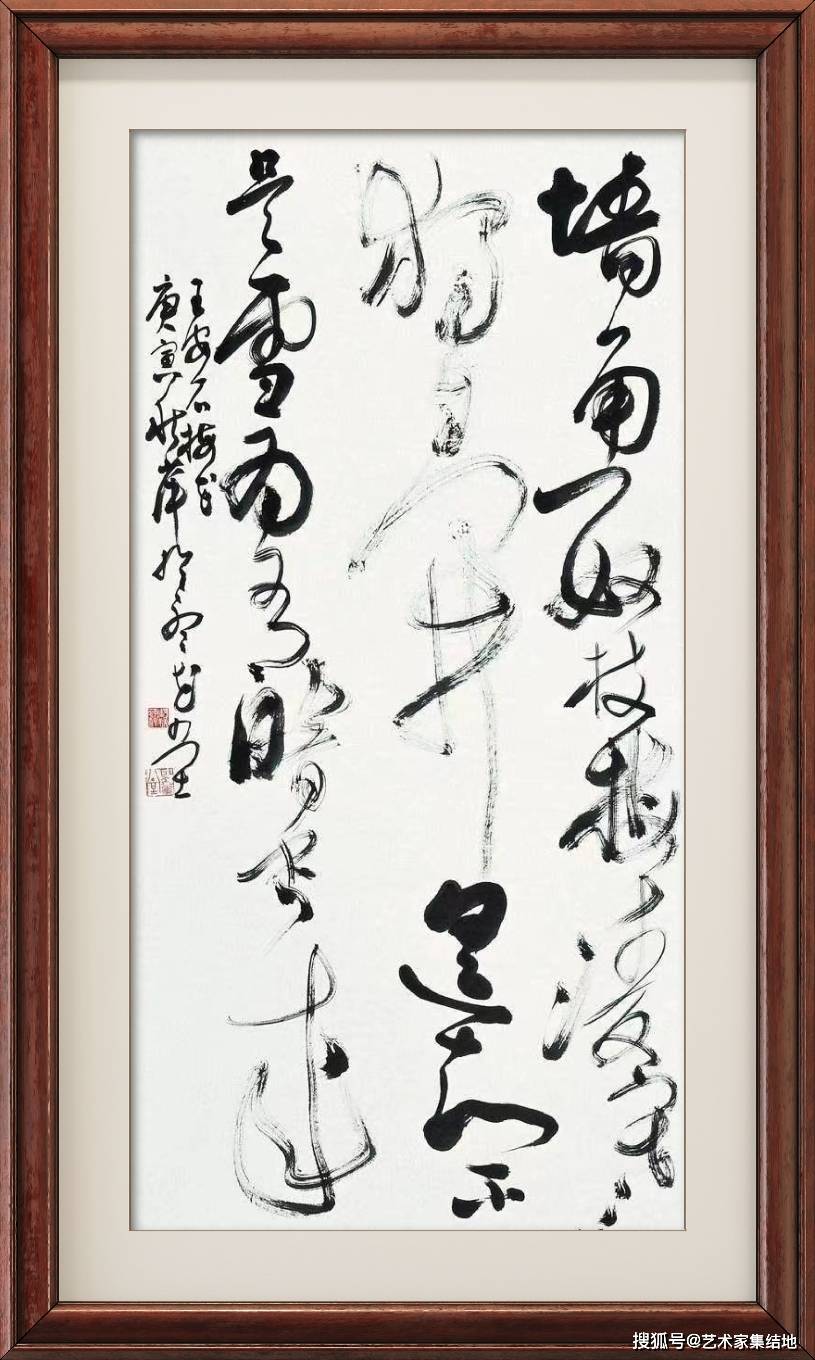 墙角数枝梅凌寒
独自开遥知不
是雪为有暗香来
王安石梅花
庚寅秋薛
搜狐号@艺术家集结地